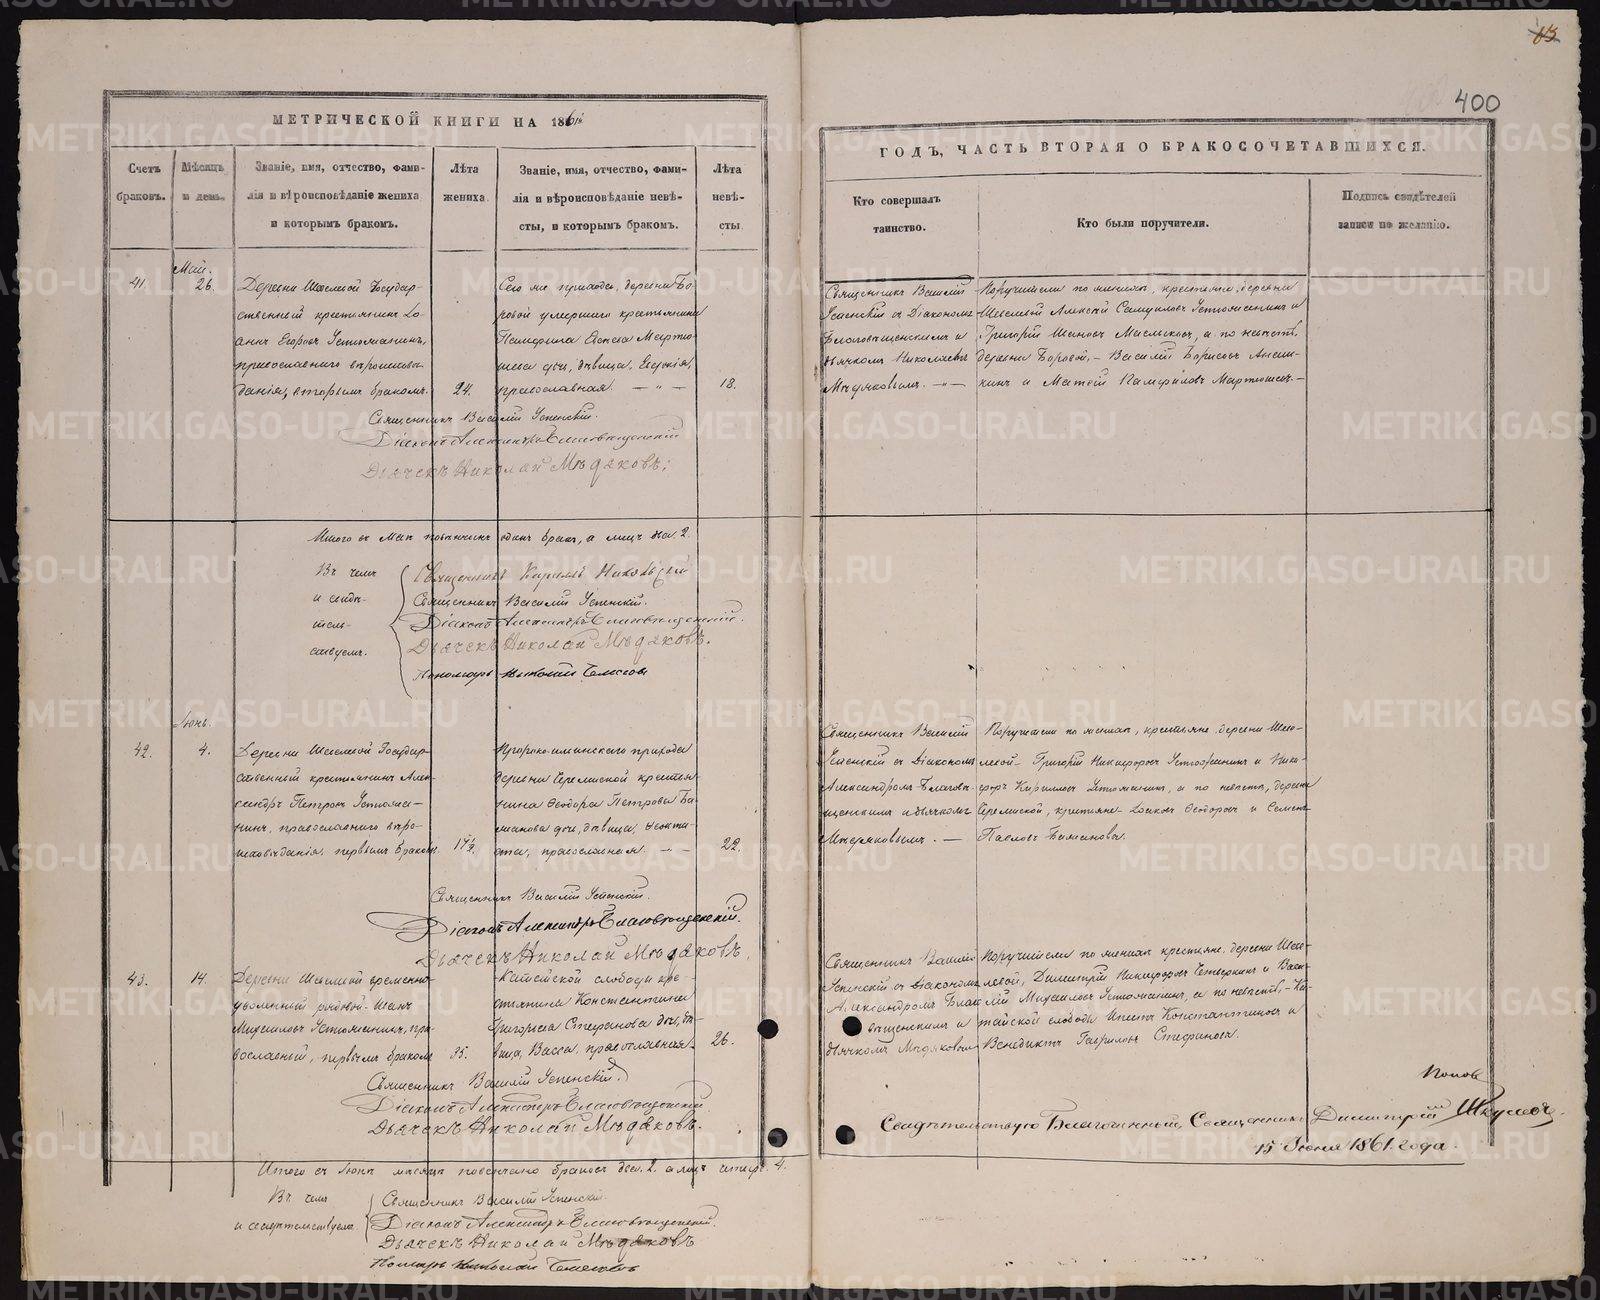 400
МЕТРИЧЕСКОЙ КНИГИ НА 1861й
Счетъ браковъ.
Мѣсяцъ и день.
Званіе, имя, отчество, фами-
лія и вѣроисповѣданіе жениха
и которымъ бракомъ.
Лѣта
жениха
Званіе, имя, отчество, фами-
лія и вѣроисповѣданіе невѣ-
сты, и которымъ бракомъ.
Лѣта
невѣ-
сты
41.
Май.
26.
Деревни Шмелевой Государ-
ственный крестьянинъ
Егоровъ Устюжанинъ,
православнаго вѣроисповѣ-
данія, вторымъ бракомъ.
24.
Сего же прихода, деревни Бо-
ровой умершаго крестьянина
Памфила
дочь, дѣвица,
православная. — „ —
18.
Священникъ Василій Успенскій.
Діаконъ Александръ Благовѣщенскій
Дьячекъ Николай Мѣдяковъ.
Итого въ Маѣ повѣнчанъ одинъ бракъ, а лицъ два. 2.
Въ чемъ
и свидѣ-
тель-
ствуемъ.
Священникъ Кириллъ Никольскій
Священникъ Василій Успенскій.
Діаконъ Александръ Благовѣщенскій.
Дьячекъ Николай Мѣдяковъ.
Пономарь
42.
Іюнь.
4.
Деревни Шмелевой Государ-
ственный крестьянинъ Алек-
сандръ Петровъ Устюжа-
нинъ, православнаго вѣро-
исповѣданія, первымъ бракомъ.
прихода
деревни Черемисской крестья-
нина Ѳеодора Петрова Ба-
жанова дочь, дѣвица, Ѳеокти-
ста, православная. — —
22.
Священникъ Василій Успенскій.
Діаконъ Александръ Благовѣщенскій.
Дьячекъ Николай Мѣдяковъ.
43.
14.
Деревни Шмелевой временно-
уволенный рядовой Иванъ
Михайловъ Устюжанинъ, пра-
вославный, первымъ бракомъ
35.
Катайской слободы кре-
стьянина Константина
Григорьева Стефанова дочь, дѣ-
вица, Васса, православная.
26.
Священникъ Василій Успенскій.
Діаконъ Александръ Благовѣщенскій.
Дьячекъ Николай Мѣдяковъ.
Итого въ Іюнѣ мѣсяцѣ повѣнчано браковъ два. 2. а лицъ четыре. 4.
Въ чемъ
и свидѣтельствуемъ.
Священникъ Василій Успенскій.
Діаконъ Александръ Благовѣщенскій.
Дьячекъ Николай Мѣдяковъ
ГОДЪ, ЧАСТЬ ВТОРАЯ О БРАКОСОЧЕТАВШИХСЯ.
Кто совершалъ
таинство.
Кто были поручители.
Подпись свидѣтелей
записи по желанію.
Священникъ Василій
Успенскій съ Діакономъ
Благовѣщенскимъ и
дьячкомъ Николаемъ
Мѣдяковымъ. — „ —
Поручители по женихѣ, крестьяне, деревни
Шмелевой Алексѣй Самуиловъ Устюжанинъ и
Григорій Ивановъ а по невѣстѣ,
деревни Боровой, — Василій Борисовъ
и Матвѣй Памфиловъ
Священникъ Василій
Успенскій съ Діакономъ
Александромъ Благовѣ-
щенскимъ и дьячкомъ
Мѣдяковымъ. —
Поручители по женихѣ, крестьяне деревни Шме-
левой — Григорій Никифоровъ Устюжанинъ и Ники-
форъ Кирилловъ Устюжанинъ, а по невѣстѣ, деревни
Черемисской, крестьяне Ѳеодоровъ и Семенъ
Павловъ Бажановы.
Священникъ Василій
Успенскій съ Діакономъ
Александромъ Благо-
вѣщенскимъ и
дьячкомъ Мѣдяковымъ
Поручители по женихѣ крестьяне деревни Шме-
левой, Димитрій Никифоровъ и Васи-
лій Михайловъ Устюжанинъ, а по невѣстѣ, — Ка-
тайской слободы Константиновъ и
Венедиктъ Гавриловъ Стефановы.
Свидѣтельствую Благочинный, Священникъ Димитрій
Поповъ
15 Іюня 1861. года.
METRIKI.GASO-URAL.RU